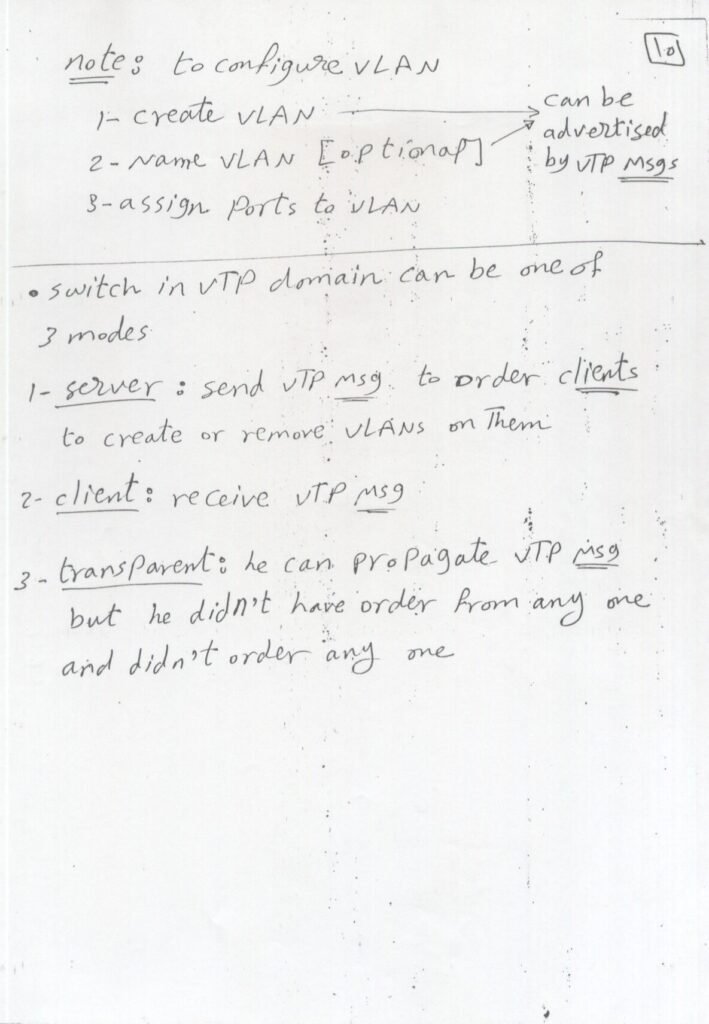 10
note: to configure VLAN
1- create VLAN
2- Name VLAN [optional]
can be
advertised
by VTP Msgs
3- assign Ports to VLAN
• switch in VTP domain can be one of
3 modes
1- server: send VTP msg to order clients
to create or remove VLANs on Them
2- client: receive VTP Msg
3- transparent: he can propagate VTP Msg
but he didn't have order from any one
and didn't order any one